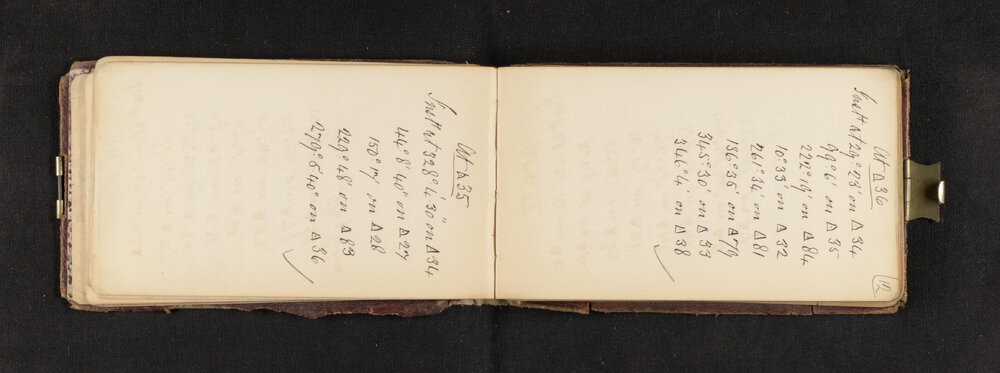 At △35
Instt at 328° 4' 30" on △34
44° 8' 40" on △27
150° 17' on △28
229° 48' on △83
279° 5' 40" on △36
12
At △36
Instt at 29° 23' on △34
99° 6' on △35
222° 19' on △84
10° 33' on △32
261° 34' on △81
136° 35' on △79
345° 30' on △33
346° 4' on △38